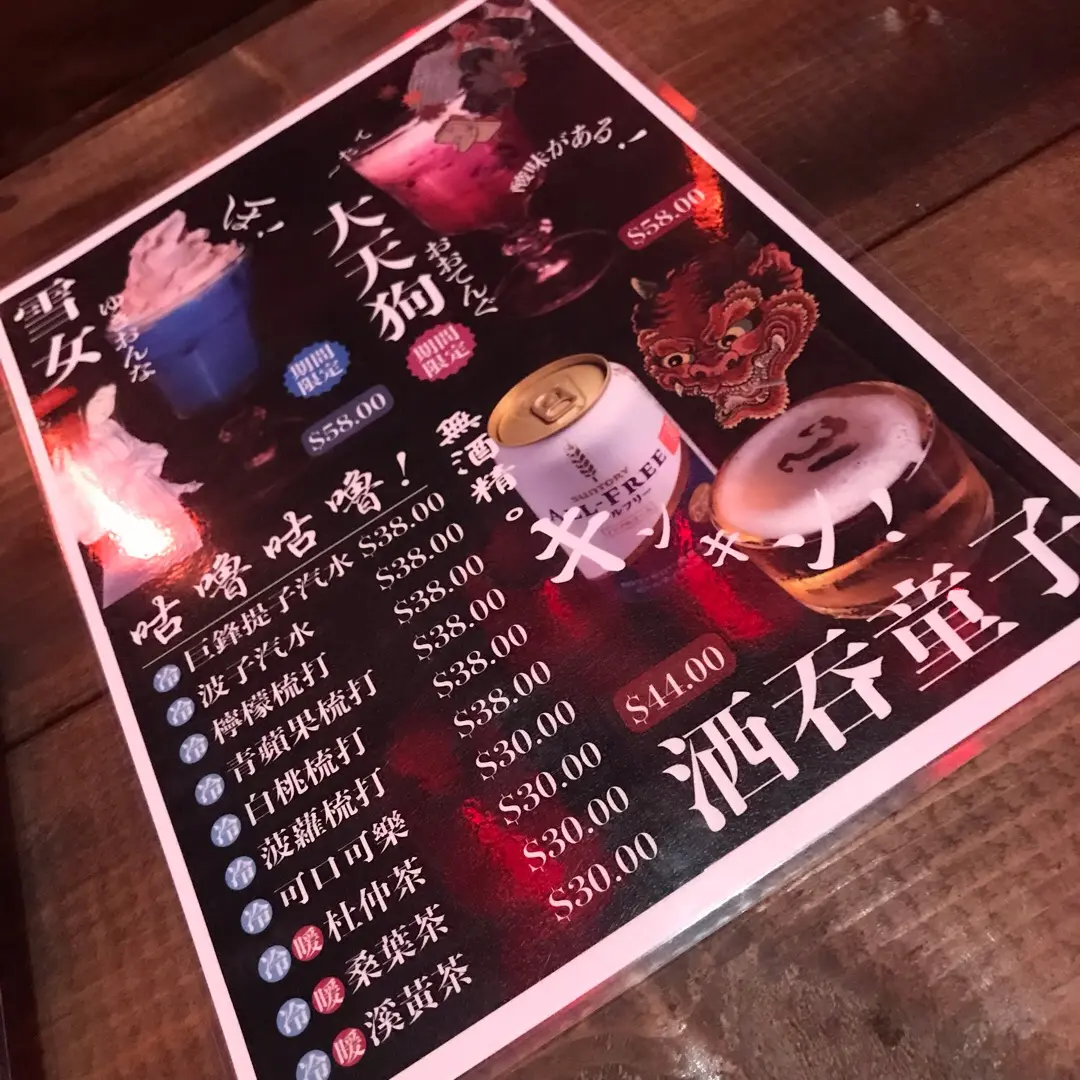 一たて
酸味がある!
大天狗
おおてんぐ
$58.00
期間
限定
ば!
雪女
ゆおんな
期間
限定
$58.00
無酒精。
SUNTORY
ALL-FREE
オールフリー
キンキン!
酒呑童子
$44.00
咕嚕咕嚕!
冷 巨鋒提子汽水 $38.00
冷 波子汽水 $38.00
冷 檸檬梳打 $38.00
冷 青蘋果梳打 $38.00
冷 白桃梳打 $38.00
冷 波蘿梳打 $38.00
冷 可口可樂 $30.00
冷 暖 杜仲茶 $30.00
冷 暖 桑葉茶 $30.00
冷 暖 溪黃茶 $30.00